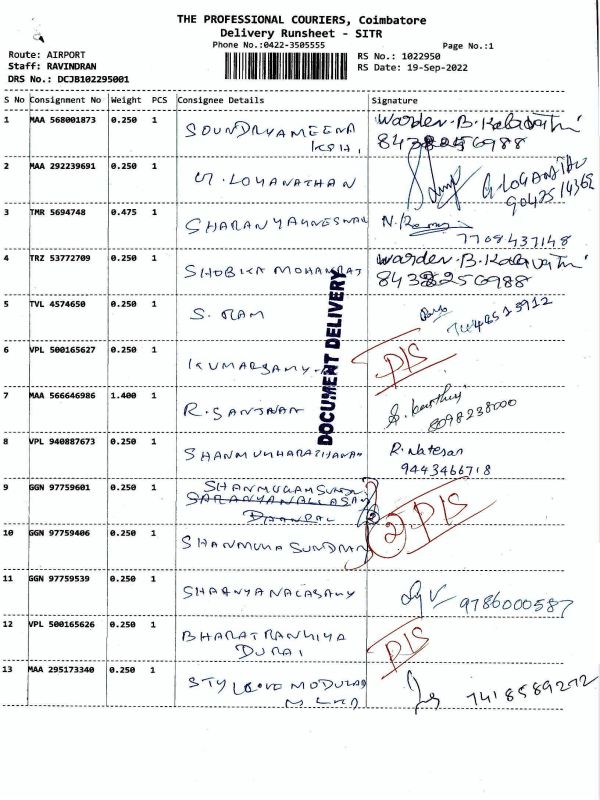 THE PROFESSIONAL COURIERS, Coimbatore
Delivery Runsheet - SITR
Phone No.:0422-3505555
Page No.:1
Route: AIRPORT
Staff: RAVINDRAN
DRS No.: DCJB102295001
RS No.: 1022950
RS Date: 19-Sep-2022
S No Consignment No Weight PCS Consignee Details Signature
1 MAA 568001873 0.250 1 SOUNDRYAMEENA Warden-B.Kalavathi
8438256988
2 MAA 292239691 0.250 1 LOGANATHAN
3 TMR 5694748 0.475 1 N.
7708437148
4 TRZ 53772709 0.250 1 SHOBIKA MOHANRAJ Warden-B.Kalavathi
8438256988
5 TVL 4574650 0.250 1 S. RAM
6 VPL 500165627 0.250 1 DIS
7 MAA 566646986 1.400 1 R. SANJNAN
8098238000
8 VPL 940887673 0.250 1 R. Natesan
9443466718
DOCUMENT DELIVERY
9 GGN 97759601 0.250 1 SHANMUGAMSUNDR
2 DIS
10 GGN 97759406 0.250 1 SHANMUGA SUNDRAM
11 GGN 97759539 0.250 1 9786000587
12 VPL 500165626 0.250 1 BHARAT RANKIYA DIS
DURAI
13 MAA 295173340 0.250 1 MODULAR 7418589272